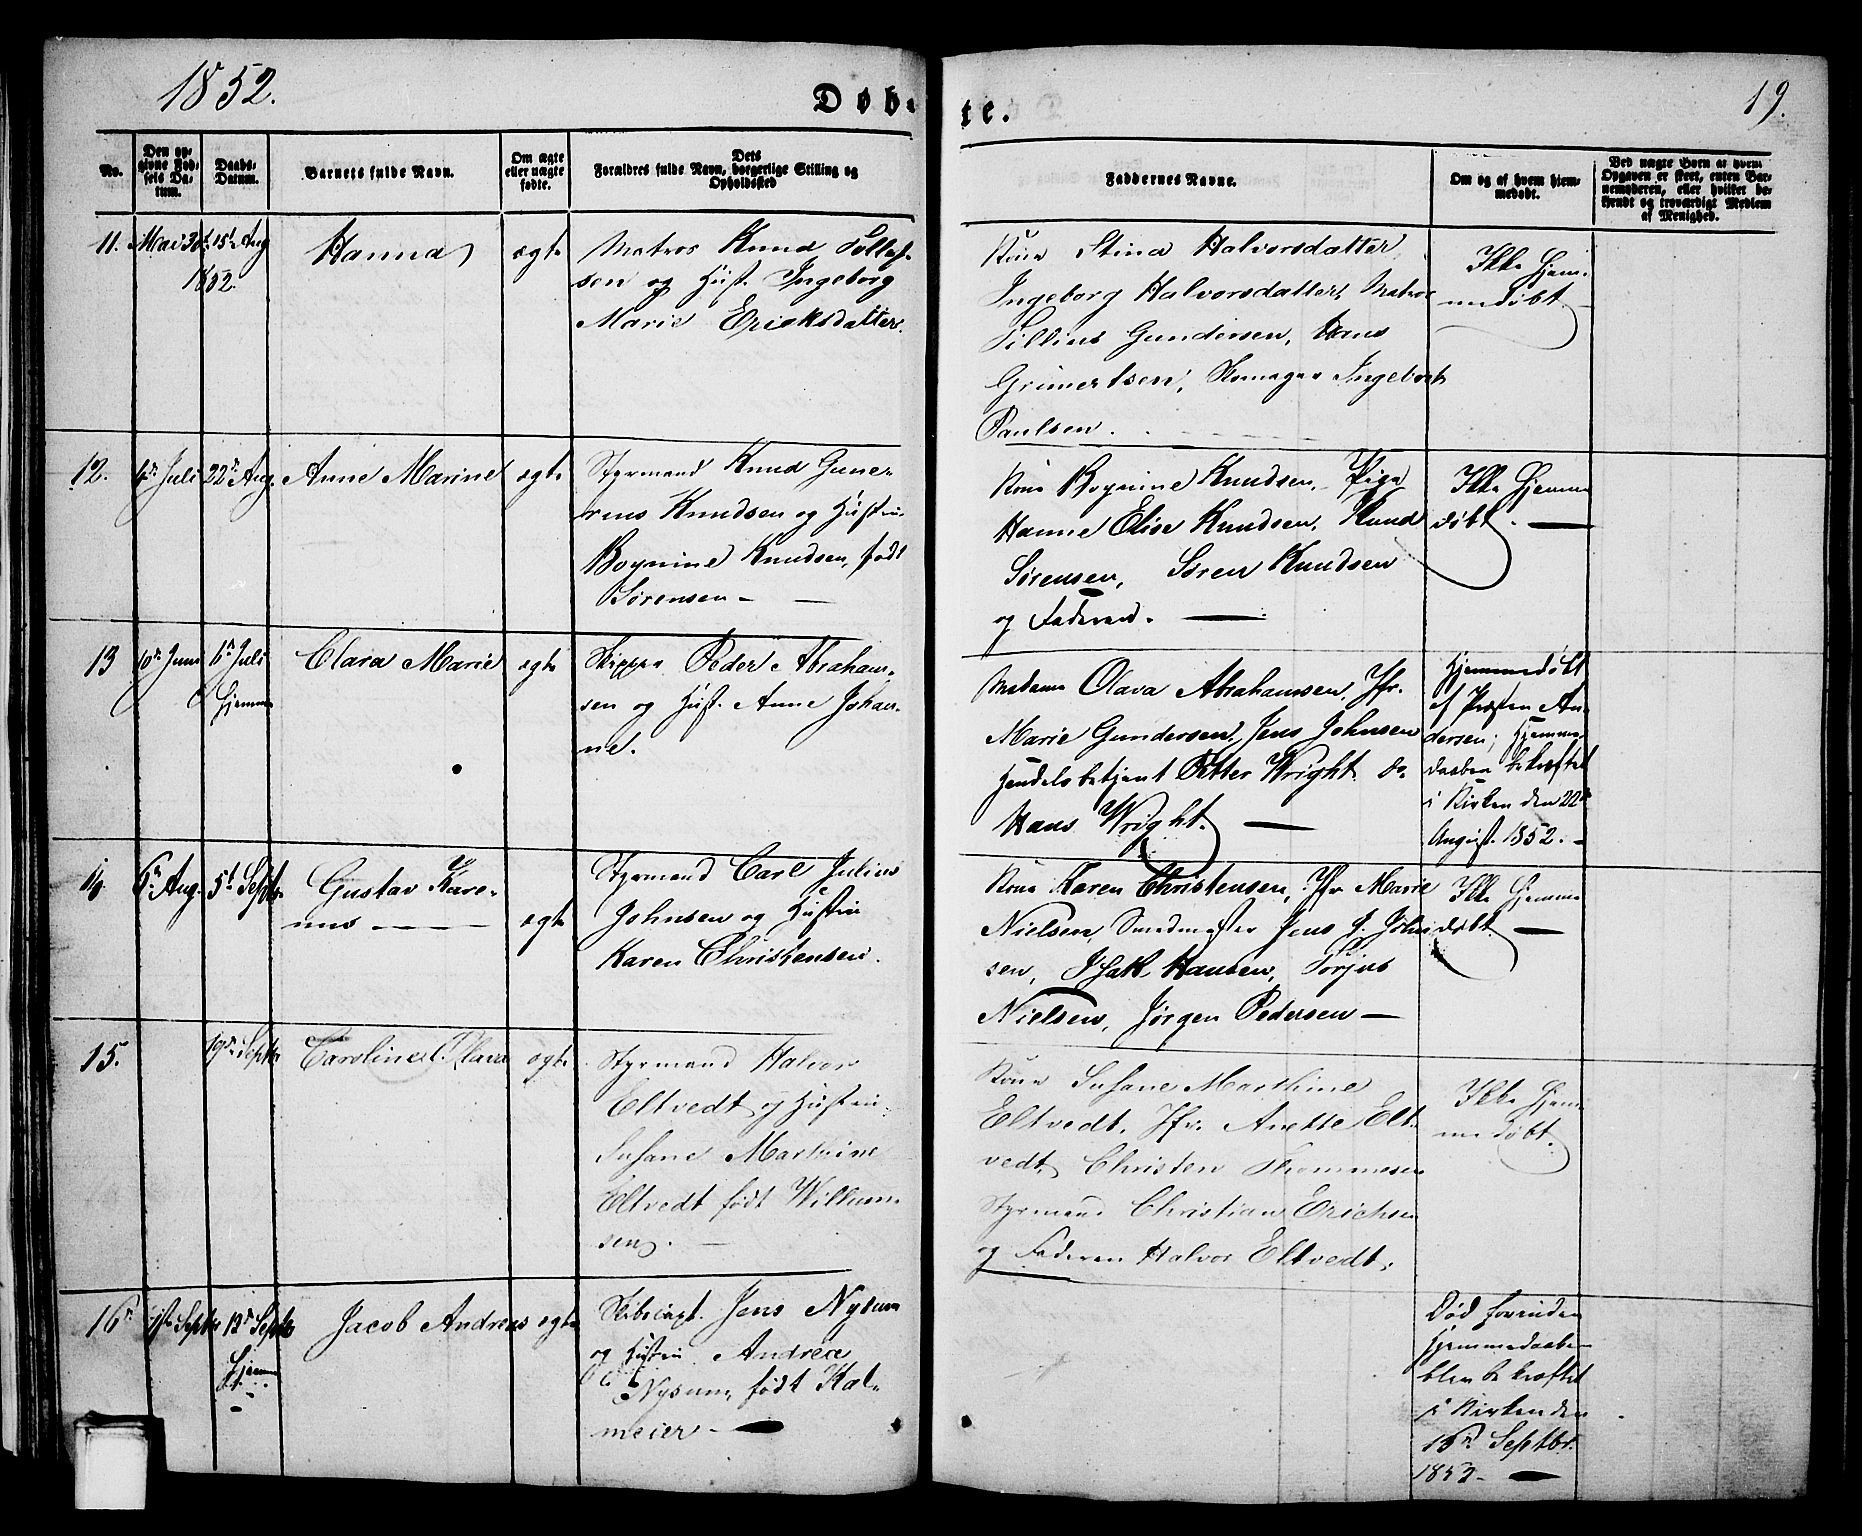 1852.
Døb-
te.
19.
No.
Den op-
givne Fød-
sels Da-
tum.
Daabs-
Datum.
Barnets fulde Navn.
Om ægte
eller uægte
fødte.
Dets
Forældres fulde Navn, borgerlige Stilling og
Opholdssted
Faddernes Navne.
Om og af hvem hjem-
medøbt.
Ved uægte Børn af hvem
Opgaven er skeet, enten Bar-
nemoderen, eller hvilket be-
kendt og troværdigt Medlem
af Menighed.
11.
Mai 30te
15de Aug
1852.
Hanna
ægte
Matros Knud Tollef-
sen og Hust. Ingeborg
Marie Ericksdatter.
Kone Stina Halvorsdatter,
Ingeborg Halvorsdatter, Matros
Tillius Gundersen, Hans
Grimertsen, Ingeborg
Paulsen.
Ikke Hjem-
medøbt
12.
4de Juli
22de Aug.
Anne Marine
ægte
Styrmand Knud Gune-
rius Knudsen og Hustru
Bognine Knudsen, født
Sørensen
Kone Bognine Knudsen, Pige
Hanne Elise Knudsen, Knud
Sørensen, Søren Knudsen
og Faderen.
Ikke Hjemme-
døbt.
13
10de Juni
6te Juli
Hjemme
Clara Marie
ægte
Skipper Peder Abraham-
sen og Hust. Anne Johan-
ne.
Madame Olava Abrahamsen, Jfr.
Marie Gundersen, Jens Johnsen
Handelsbetjent Petter Wright &
Hans Wright.
Hjemmedøbt
af Præsten An-
dersen; Hjemme-
daaben bekræftet
i Kirken den 22de
August 1852.
14
6te Aug.
5te Septbr
Gustav Kare-
nius
ægte
Styrmand Carl Julius
Johnsen og Hustru
Karen Christensen.
Kone Karen Christensen, Jfr Marie
Nielsen, Smedmester Jens J. John-
sen, Isak Hansen, Torjus
Nielsen, Jørgen Pedersen
Ikke Hjemme-
døbt.
15.
19de Septbr
Caroline Olava
ægte
Styrmand Halvor
Eltvedt og Hustru
Susane Marthine
Eltvedt født William-
sen.
Kone Susane Marthine
Eltvedt, Jfr. Anette Elt-
vedt, Christen Thommesen
Styrmand Christian Erichsen
og Faderen Halvor Eltvedt.
Ikke Hjem-
medøbt.
16
1ste Septbr
13de Septbr
Hjemme
Jacob Andreas
ægte
Skibscapt. Jens Nysum
og Hustru Andrea
Nysum, født Kal-
meier
Død forinden
Hjemmedaaben
blev bekræftet
i Kirken den
16de Septbr.
1852